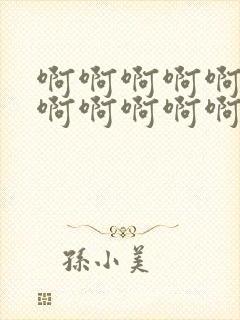 啊啊啊啊啊
啊啊啊啊啊
孫小美